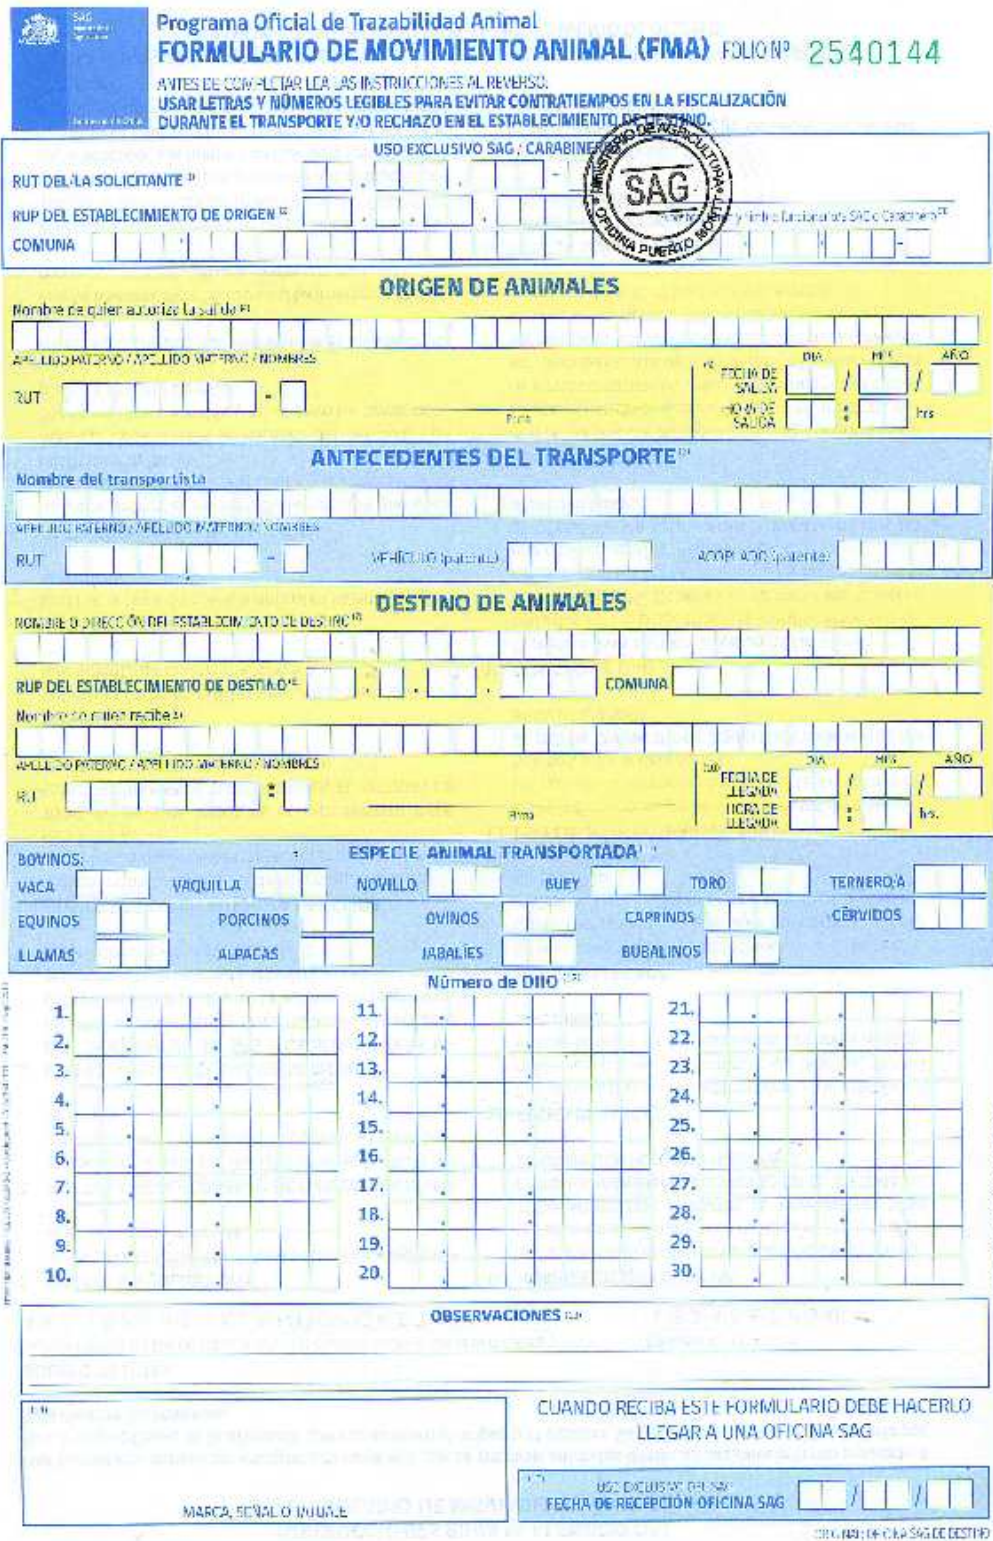 SAG
Programa Oficial de Trazabilidad Animal
FORMULARIO DE MOVIMIENTO ANIMAL (FMA) FOLIO Nº 2540144
ANTES DE COMPLETAR LEA LAS INSTRUCCIONES AL REVERSO.
USAR LETRAS Y NÚMEROS LEGIBLES PARA EVITAR CONTRATIEMPOS EN LA FISCALIZACIÓN
DURANTE EL TRANSPORTE Y/O RECHAZO EN EL ESTABLECIMIENTO DE DESTINO.
USO EXCLUSIVO SAG / CARABINEROS
MINISTERIO DE AGRICULTURA
SAG
OFICINA PUERTO MONTT
RUT DEL/LA SOLICITANTE
RUP DEL ESTABLECIMIENTO DE ORIGEN
COMUNA
ORIGEN DE ANIMALES
Nombre de quien autoriza la salida
APELLIDO PATERNO / APELLIDO MATERNO / NOMBRES
DIA MES AÑO
RUT - Firma FECHA DE SALIDA / /
HORA DE SALIDA : hrs
ANTECEDENTES DEL TRANSPORTE
Nombre del transportista
APELLIDO PATERNO / APELLIDO MATERNO / NOMBRES
RUT - VEHÍCULO (patente) ACOPLADO (patente)
DESTINO DE ANIMALES
NOMBRE O DIRECCIÓN DEL ESTABLECIMIENTO DE DESTINO
RUP DEL ESTABLECIMIENTO DE DESTINO COMUNA
Nombre de quien recibe
APELLIDO PATERNO / APELLIDO MATERNO / NOMBRES
DIA MES AÑO
RUT Firma FECHA DE LLEGADA / /
HORA DE LLEGADA : hrs.
ESPECIE ANIMAL TRANSPORTADA
BOVINOS:
VACA VAQUILLA NOVILLO BUEY TORO TERNERO/A
EQUINOS PORCINOS OVINOS CAPRINOS CÉRVIDOS
LLAMAS ALPACAS JABALÍES BUBALINOS
Número de DIIO
1. 11. 21.
2. 12. 22.
3. 13. 23.
4. 14. 24.
5. 15. 25.
6. 16. 26.
7. 17. 27.
8. 18. 28.
9. 19. 29.
10. 20. 30.
OBSERVACIONES
CUANDO RECIBA ESTE FORMULARIO DEBE HACERLO
LLEGAR A UNA OFICINA SAG
MARCA, SEÑAL O TATUAJE
USO EXCLUSIVO DEL SAG
FECHA DE RECEPCIÓN OFICINA SAG / /
ORIGINAL: OFICINA SAG DE DESTINO